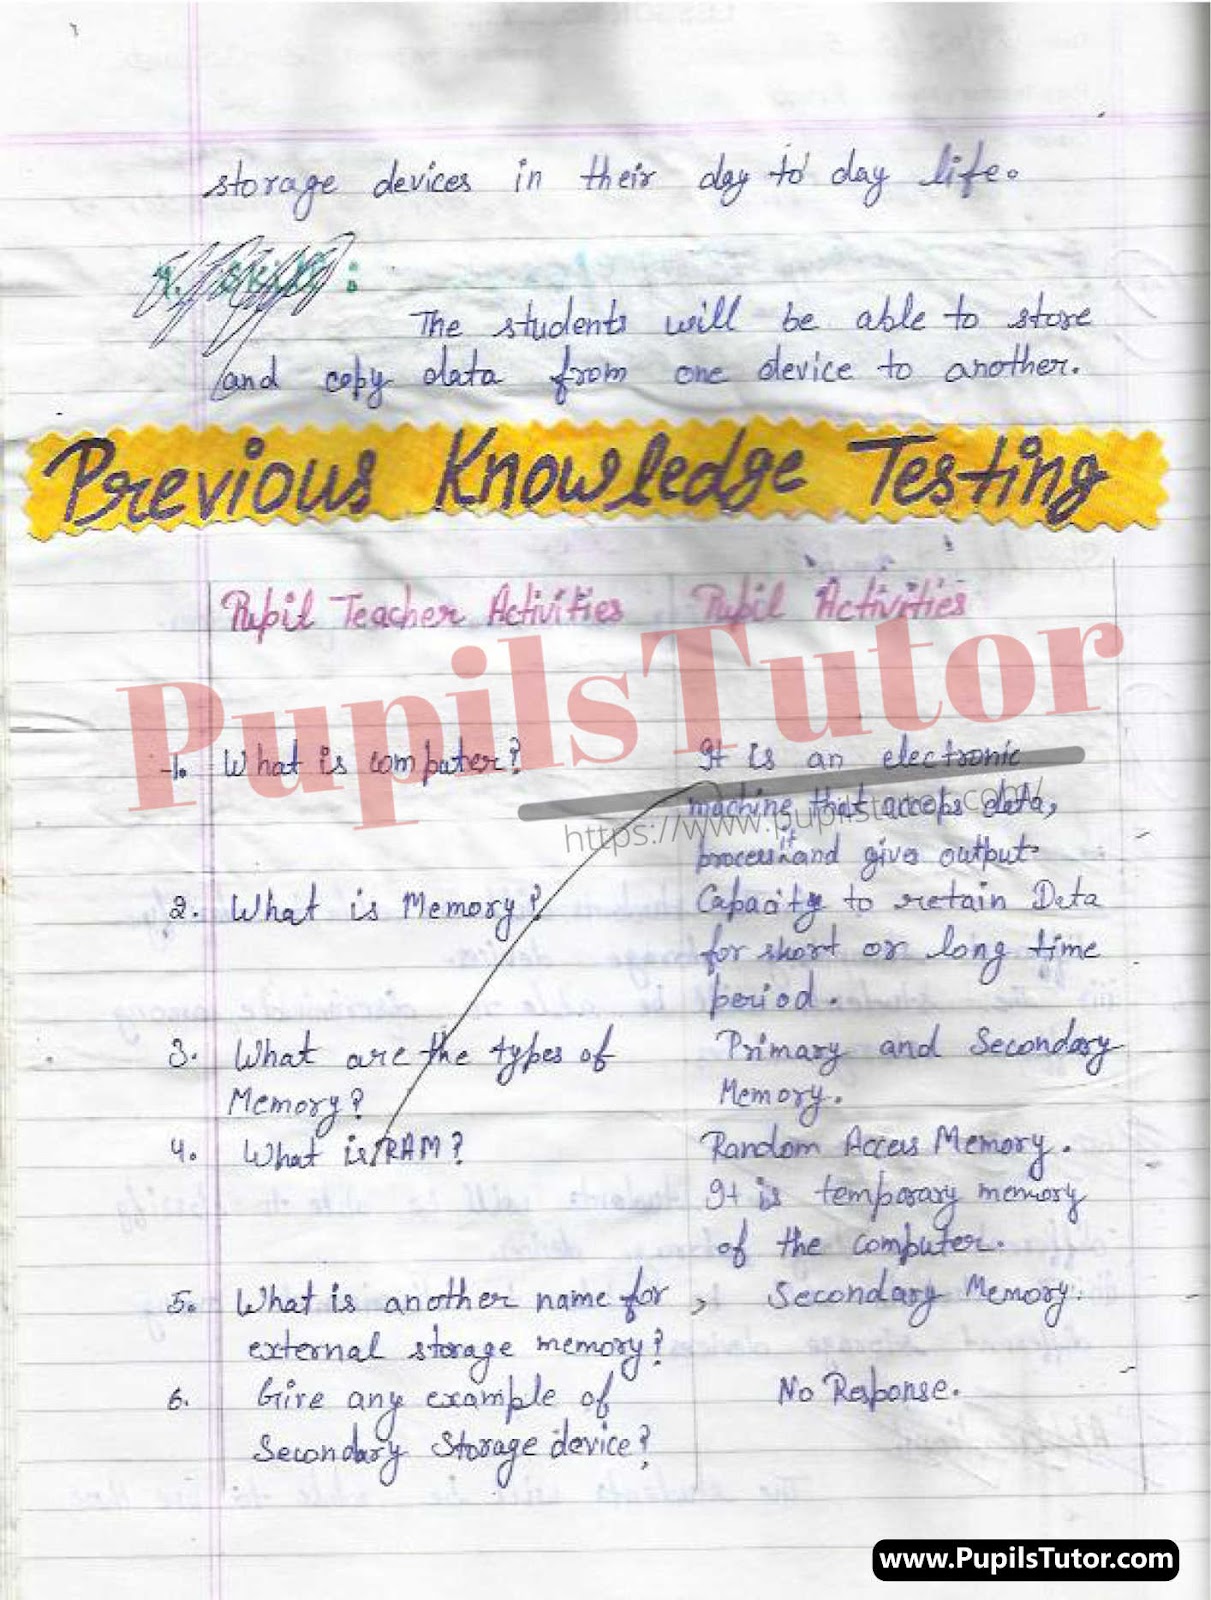 storage devices in their day to day life.
The students will be able to store
and copy data from one device to another.
Previous Knowledge Testing
Pupil Teacher Activities Pupil Activities
PupilsTutor
https://www.pupilstutor.com/
1. What is computer? It is an electronic
machine that acceps data,
process it and give output.
2. What is Memory? Capacity to retain Data
for short or long time
period.
3. What are the types of Primary and Secondary
Memory? Memory.
4. What is RAM? Random Access Memory.
It is temporary memory
of the computer.
5. What is another name for , Secondary Memory.
external storage memory?
6. Give any example of No Response.
Secondary Storage device?
www.PupilsTutor.com